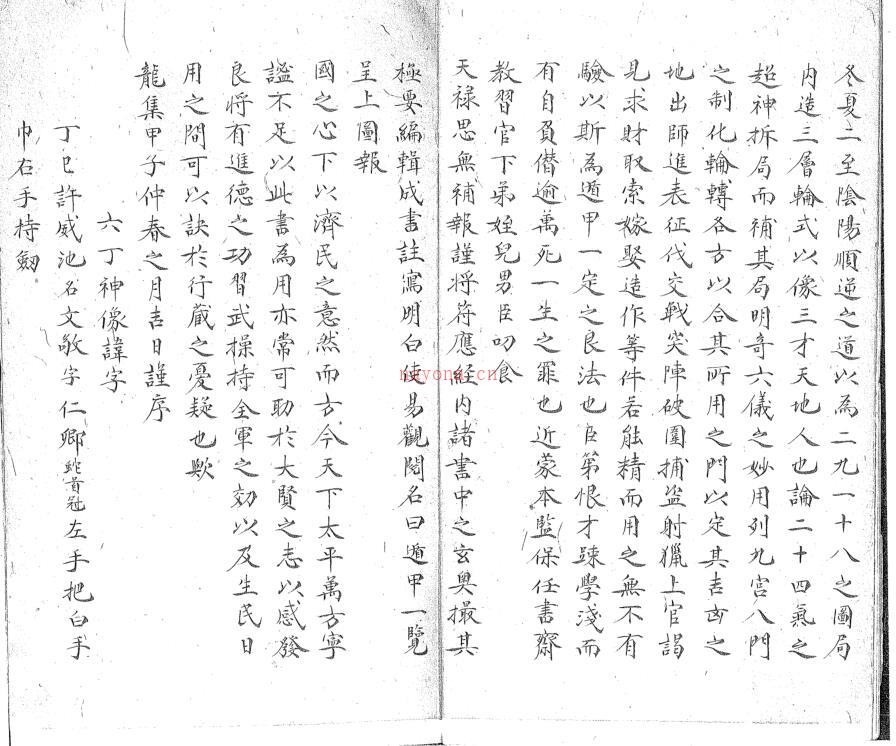 冬夏二至陰陽順逆之道以為二九一十八之圖局
内造三層輪式以像三才天地人也論二十四氣之
超神拆局而補其局明奇六儀之妙用列九宮八門
之制化輪轉各方以合其所用之門以定其吉凶之
地出師進表征伐交戰突陣破圍捕盗射獵上官謁
見求財取索嫁娶造作等件若能精而用之無不有
驗以斯為遁甲一定之良法也臣第恨才踈學淺而
有自負僭逾萬死一生之罪也近蒙本監保任書齋
教習官下弟姪兒男臣叨食
天禄思無補報謹将符應經内諸書中之玄奥撮其
極要編輯成書註寫明白使易觀閱名曰遁甲一覽
呈上圖報
國之心下以濟民之意然而方今天下太平萬方寧
謐不足以此書為用亦常可助於大賢之志以感發
良将有進德之功習武操持全軍之効以及生民日
用之間可以訣於行藏之憂疑也歟
龍集甲子仲春之月吉日謹序
六丁神像諱字
丁巳許威池名文敬字仁卿蛇首冠左手把白手
巾右手持劒
nayona.cn